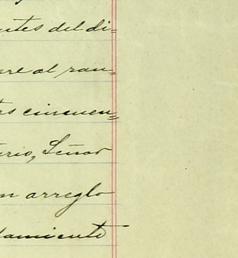 ntes del di=
re al ran=
rs cincuen=
rio, Señor
n arreglo
damiento